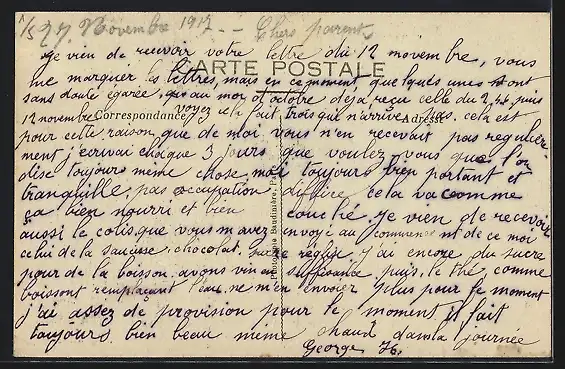 le 27 Novembre 1917 -- Chers parents
je vien de recevoir votre lettre du 12 novembre, vous
me marquier les lettres, mais en ce moment, quelques unes sont
CARTE POSTALE
sans doute égarée, qui au moi d'octobre déja reçue celle du 2, 4 6, puis
12 novembre voyez cela fait trois que n'arrive pas, cela est
Correspondance Adresse
pour cette raison, que de moi vous n'en recevait pas regulière-
ment j'écrivai chaque 3 jours que voulez vous que l'on
dise toujours meme chose, moi toujours bien portant et
tranquille, pas occupation diffère cela va comme
ça bien nourri et bien couché, je vien de recevoir
aussi le colis que vous m'avez envoyé au commencement de ce moi
celui de la saucisse, chocolat, sucre réglisse, j'ai encore du sucre
pour de la boisson, avons vin en suffisance, puis, le thé, comme
boissont remplaçant l'eau, ne m'en envoier plus pour le moment
j'ai assez de provision pour le moment, il fait
toujours bien beau meme chaud dans la journée
George H.
Photographie Baudinière, Paris